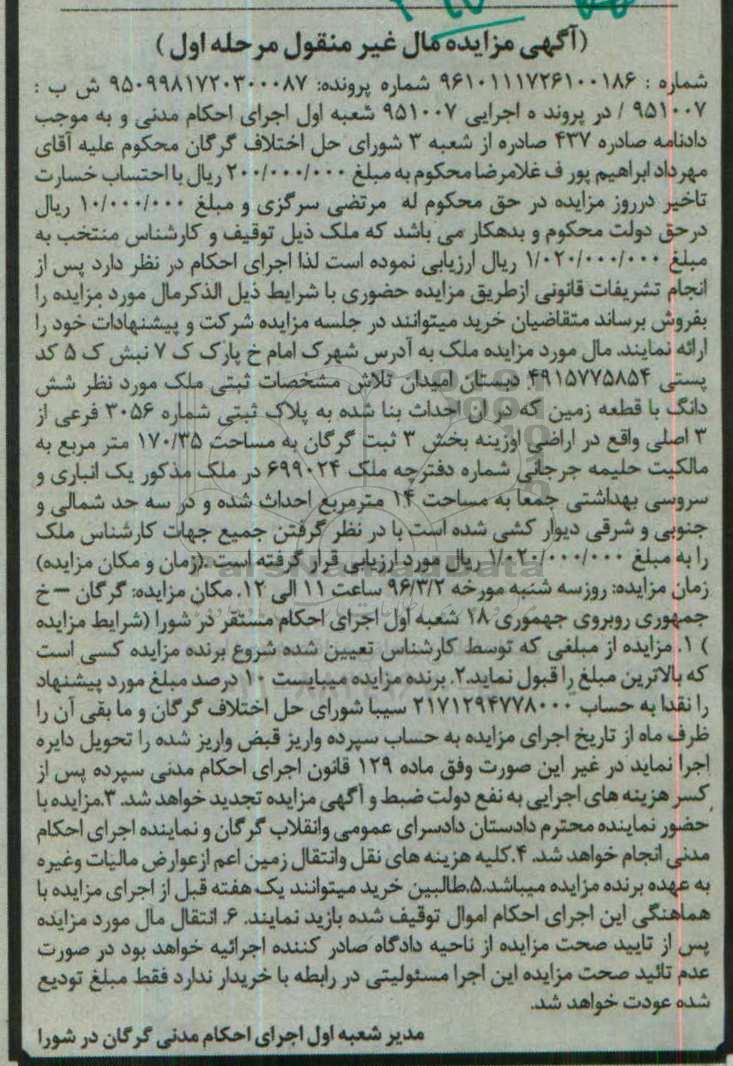 (آگهی مزایده مال غیر منقول مرحله اول)
شماره : ۹۶۱۰۱۱۱۷۲۶۱۰۰۱۸۶ شماره پرونده: ۹۵۰۹۹۸۱۷۲۰۳۰۰۰۸۷ ش ب :
۹۵۱۰۰۷ / در پروند ه اجرایی ۹۵۱۰۰۷ شعبه اول اجرای احکام مدنی و به موجب
دادنامه صادره ۴۳۷ صادره از شعبه ۳ شورای حل اختلاف گرگان محکوم علیه آقای
مهرداد ابراهیم پور ف غلامرضا محکوم به مبلغ ۲۰۰/۰۰۰/۰۰۰ ریال با احتساب خسارت
تاخیر درروز مزایده در حق محکوم له مرتضی سرگزی و مبلغ ۱۰/۰۰۰/۰۰۰ ریال
درحق دولت محکوم و بدهکار می باشد که ملک ذیل توقیف و کارشناس منتخب به
مبلغ ۱/۰۲۰/۰۰۰/۰۰۰ ریال ارزیابی نموده است لذا اجرای احکام در نظر دارد پس از
انجام تشریفات قانونی ازطریق مزایده حضوری با شرایط ذیل الذکرمال مورد مزایده را
بفروش برساند متقاضیان خرید میتوانند در جلسه مزایده شرکت و پیشنهادات خود را
ارائه نمایند. مال مورد مزایده ملک به آدرس شهرک امام خ پارک ک ۷ نبش ک ۵ کد
پستی ۴۹۱۵۷۷۵۸۵۴ دبستان امیدان تلاش مشخصات ثبتی ملک مورد نظر شش
دانگ با قطعه زمین که در ان احداث بنا شده به پلاک ثبتی شماره ۳۰۵۶ فرعی از
۳ اصلی واقع در اراضی اوزینه بخش ۳ ثبت گرگان به مساحت ۱۷۰/۳۵ متر مربع به
مالکیت حلیمه جرجانی شماره دفترچه ملک ۶۹۹۰۲۴ در ملک مذکور یک انباری و
سروسی بهداشتی جمعا به مساحت ۱۴ مترمربع احداث شده و در سه حد شمالی و
جنوبی و شرقی دیوار کشی شده است با در نظر گرفتن جمیع جهات کارشناس ملک
را به مبلغ ۱/۰۲۰/۰۰۰/۰۰۰ ریال مورد ارزیابی قرار گرفته است .(زمان و مکان مزایده)
زمان مزایده: روزسه شنبه مورخه ۹۶/۳/۲ ساعت ۱۱ الی ۱۲. مکان مزایده: گرگان – خ
جمهوری روبروی جهموری ۱۸ شعبه اول اجرای احکام مستقر در شورا (شرایط مزایده
) ۱. مزایده از مبلغی که توسط کارشناس تعیین شده شروع برنده مزایده کسی است
که بالاترین مبلغ را قبول نماید.۲. برنده مزایده میبایست ۱۰ درصد مبلغ مورد پیشنهاد
را نقدا به حساب ۲۱۷۱۲۹۴۷۷۸۰۰۰ سیبا شورای حل اختلاف گرگان و ما بقی آن را
ظرف ماه از تاریخ اجرای مزایده به حساب سپرده واریز قبض واریز شده را تحویل دایره
اجرا نماید در غیر این صورت وفق ماده ۱۲۹ قانون اجرای احکام مدنی سپرده پس از
کسر هزینه های اجرایی به نفع دولت ضبط و آگهی مزایده تجدید خواهد شد. ۳.مزایده با
حضور نماینده محترم دادستان دادسرای عمومی وانقلاب گرگان و نماینده اجرای احکام
مدنی انجام خواهد شد. ۴.کلیه هزینه های نقل وانتقال زمین اعم ازعوارض مالیات وغیره
به عهده برنده مزایده میباشد.۵.طالبین خرید میتوانند یک هفته قبل از اجرای مزایده با
هماهنگی این اجرای احکام اموال توقیف شده بازید نمایند. ۶. انتقال مال مورد مزایده
پس از تایید صحت مزایده از ناحیه دادگاه صادر کننده اجرائیه خواهد بود در صورت
عدم تائید صحت مزایده این اجرا مسئولیتی در رابطه با خریدار ندارد فقط مبلغ تودیع
شده عودت خواهد شد.
مدیر شعبه اول اجرای احکام مدنی گرگان در شورا